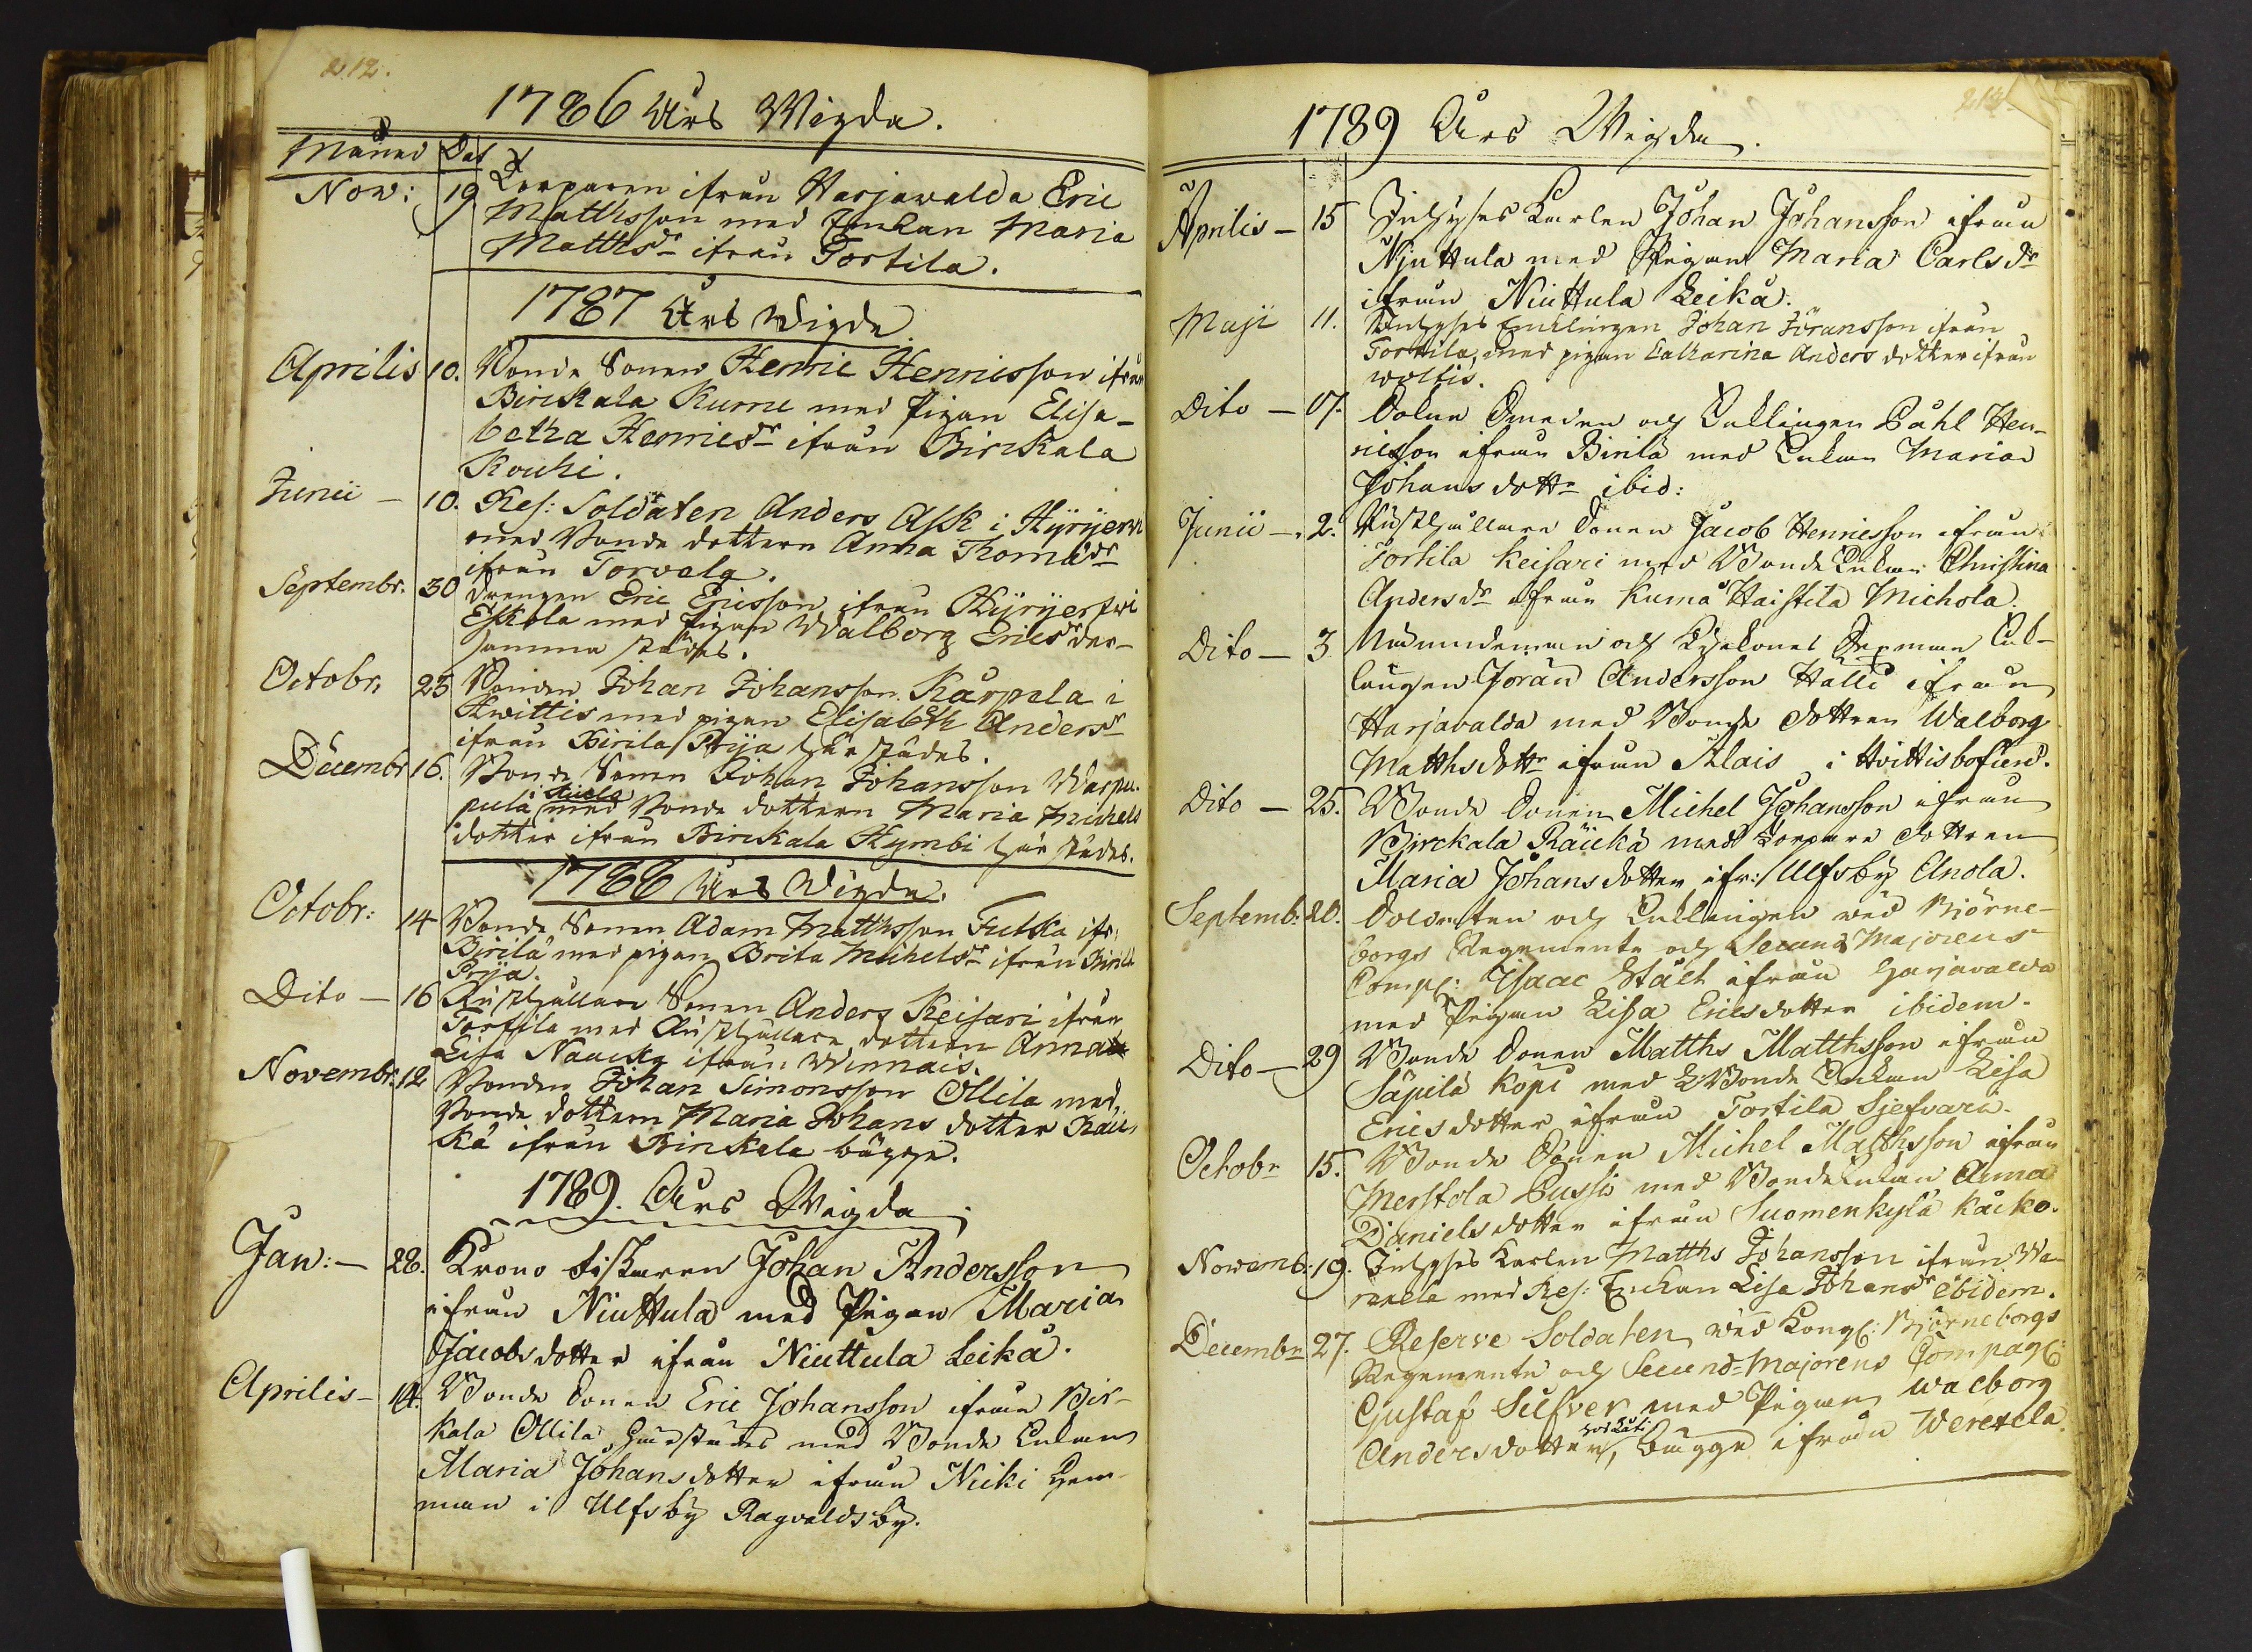 212.
1786 Års Wigda.
Månad Dat
Nov: 19 Torparen ifrån Harjawalda Eric
Matthsson med Enkan Maria
Matthsdr ifrån Tortila.
1787 Års Wigde
Aprilis 10. Bonde Sonen Henric Henricsson ifrån
Birckala Kurru med Pigan Elisa-
betha Henricsdr ifrån Birckala
Kouhi.
Junii - 10. Res: Soldaten Anders Ask i Kyrijerwi
med Bonde dottern Anna Thomædr
ifrån Torvola.
Septembr. 30 Drengen Eric Ericsson ifrån Kyrijerfwi
Eskola med Pigan Walborg Ericsdr der-
samma städes.
Octobr. 25 Bonden Johan Johansson Karpela i
Hwittis med pigan Elisabeth Andersdr
ifrån Birila Prija härstädes.
Decembr 16. Bonde Sonen Johan Johansson Warpu-
pula med Bonde dottern Maria Michels
dotter ifrån Birckala Hymbi härstädes.
1788 Års Wigde.
Octobr: 14 Bonde Sonen Adam Matthsson Futka ifr:
Birilä med pigan Brita Michelsdr ifrån Birila
Prija.
Dito - 16 Rusthållare Sonen Anders Keisari ifrån
Tortila med Rusthållare dottern Anna
Lisa Naucka ifrån Winnais.
Novembr. 12 Bonden Johan Simonsson Ollila med
Bonde dottern Maria Johans dotter Räic-
kä ifrån Birckala bägge.
1789. Års Wigda
Jan: - 28. Krono fiskaren Johan Andersson
ifrån Niuttula med Pigan Maria
Jacobsdotter ifrån Niuttula Leikä.
Aprilis - 14. Bonde Sonen Eric Johansson ifrån Bir-
kala Ollila härstädes med Bonde Enkan
Maria Johansdotter ifrån Nicki Hem-
man i Ulfsby Ragvaldsby.
213.
1789 Års Wigda.
Aprilis - 15 Inhyses Karlen Johan Johansson ifrån
Njuttula med Pigan Maria Carlsdr
ifrån Niuttula Leikä.
Maji 11. Inhyses Enklingen Johan Jöransson ifrån
Tortila, med pigan Catharina Anders dotter ifrån
woltis.
Dito - 17. Sokne Smeden och Enklingen Påhl Hen-
ricsson ifrån Birilä med Enkan Maria
Johans dottr ibid:
Junii - 2. Rusthållare Sonen Jacob Henricsson ifrån
Tortila Keisari med Bonde Enkan Christina
Andersdr ifrån Kumå Haistila Michola.
Dito - 3. Nämndeman och Kyrkones Sexman Enk-
lingen Jöran Andersson Halli ifrån
Harjavalda med Bonde dottren Walborg
Matthsdottr ifrån Klais i Hvittisbofierd.
Dito - 25. Bonde Sonen Michel Johansson ifrån
Birckala Räickä med Torpare dottren
Maria Johansdotter ifr: Ulfsby Anola.
Septemb: 20. Soldaten och Enklingen wid Biörne-
borgs Regemente och Secund Majorens
Comp: Isaac Ståelt ifrån Harjavalda
med Pigan Lisa Ericsdotter ibidem.
Dito - 29 Bonde Sonen Matths Matthsson ifrån
Säpilä Kopi med Bonde Enkan Lisa
Ericsdotter ifrån Tortila Sjefvari.
Octobr 15. Bonde Sonen Michel Matthsson ifrån
Merstola Pussi med Bonde Enkan Anna
Danielsdotter ifrån Suomenkylä Kaiko.
Novemb: 19. Inhyses Karlen Matths Johansson ifrån
med Res: Enckan Lisa Johansdr ibidem.
Decembr 27. Reserve Soldaten wid Kongl: Björneborgs
Regemente och Secund-Majorens Compagl:
Gustaf Silfver med Pigan Walborg
Andersdotter, bägge ifrån